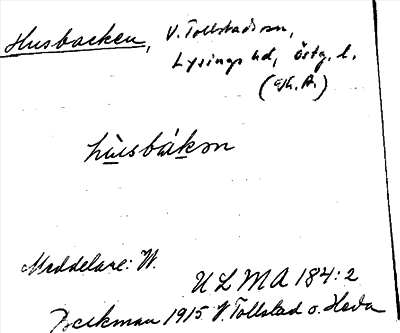 Husbacken, V. Tollstads sn,
Lysings hd, Östg. l.
(Ek. A.)
hùsbákən
Meddelare: W.
ULMA 184:2
Beckman 1915 V. Tollstad o. Heda